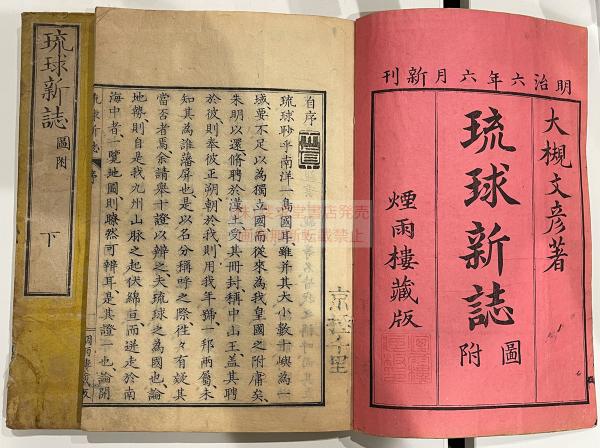 明治六年六月新刊
大槻文彦著
琉球新誌
圖附
煙雨樓藏版
自序
琉球眇乎南洋一島國耳雖并其大小數十嶼為一
域要不足以為獨立國而從來為我皇國之附庸矣
朱明以還脩聘於漢土受其冊封稱中山王蓋其聘
於彼則奉彼正朔朝於我則用我年號一邦兩屬未
知其為誰藩屏也是以名分稱呼之際往々有疑其
當否者焉余請舉十證以辨之夫琉球之為國也論
地勢則自是我九州山脈之起伏綿亘而迸走於南
海中者一覽地圖則瞭然可辨耳是其證一也論開
琉球新誌 序
煙雨樓藏版
琉球新誌 圖附 下
無断転載禁止